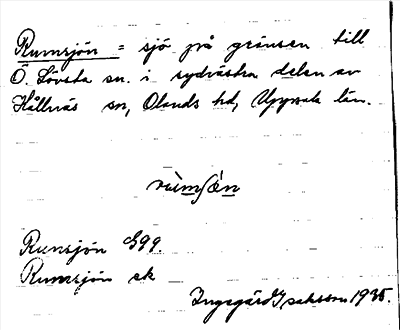 Rumsjön = sjö på gränsen till
Ö. Lövsta sn. i sydvästra delen av
Hållnäs sn, Olands hd, Uppsala län.
Rumsjön G99.
Rumsjön ek
Ingegärd Isaksson 1935.